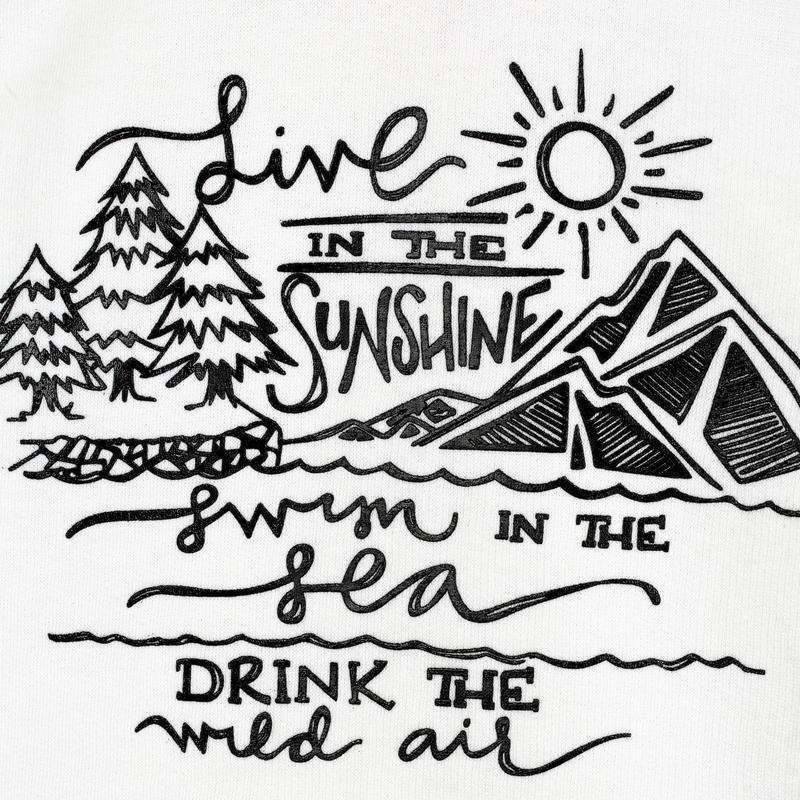 Live
IN THE
SUNSHINE
swim IN THE
sea
DRINK THE
wild air